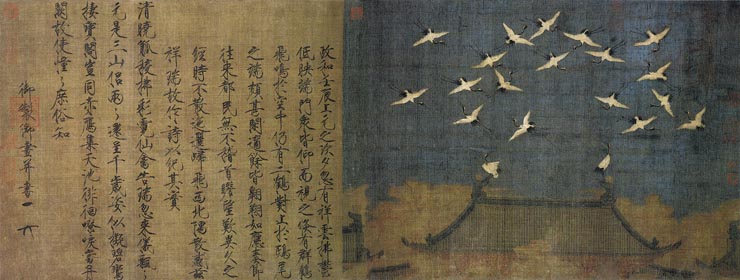 政和壬辰上元之次夕忽有祥雲拂鬱
低映端門衆皆仰而視之倏有群鶴
飛鳴於空中仍有二鶴對止於鴟尾
之端頗甚閑適餘皆翺翔如應奏節
往來都民無不稽首瞻望歎異久之
經時不散迤邐歸飛西北隅散感茲
祥瑞故作詩以紀其實
清曉觚稜拂彩霓仙禽告瑞忽來儀飄〻
元是三山侶兩〻還呈千歲姿似擬碧鸞
棲寶閣豈同赤鴈集天池徘徊嘹唳當丹
闕故使憧〻庶俗知
御製御畫并書